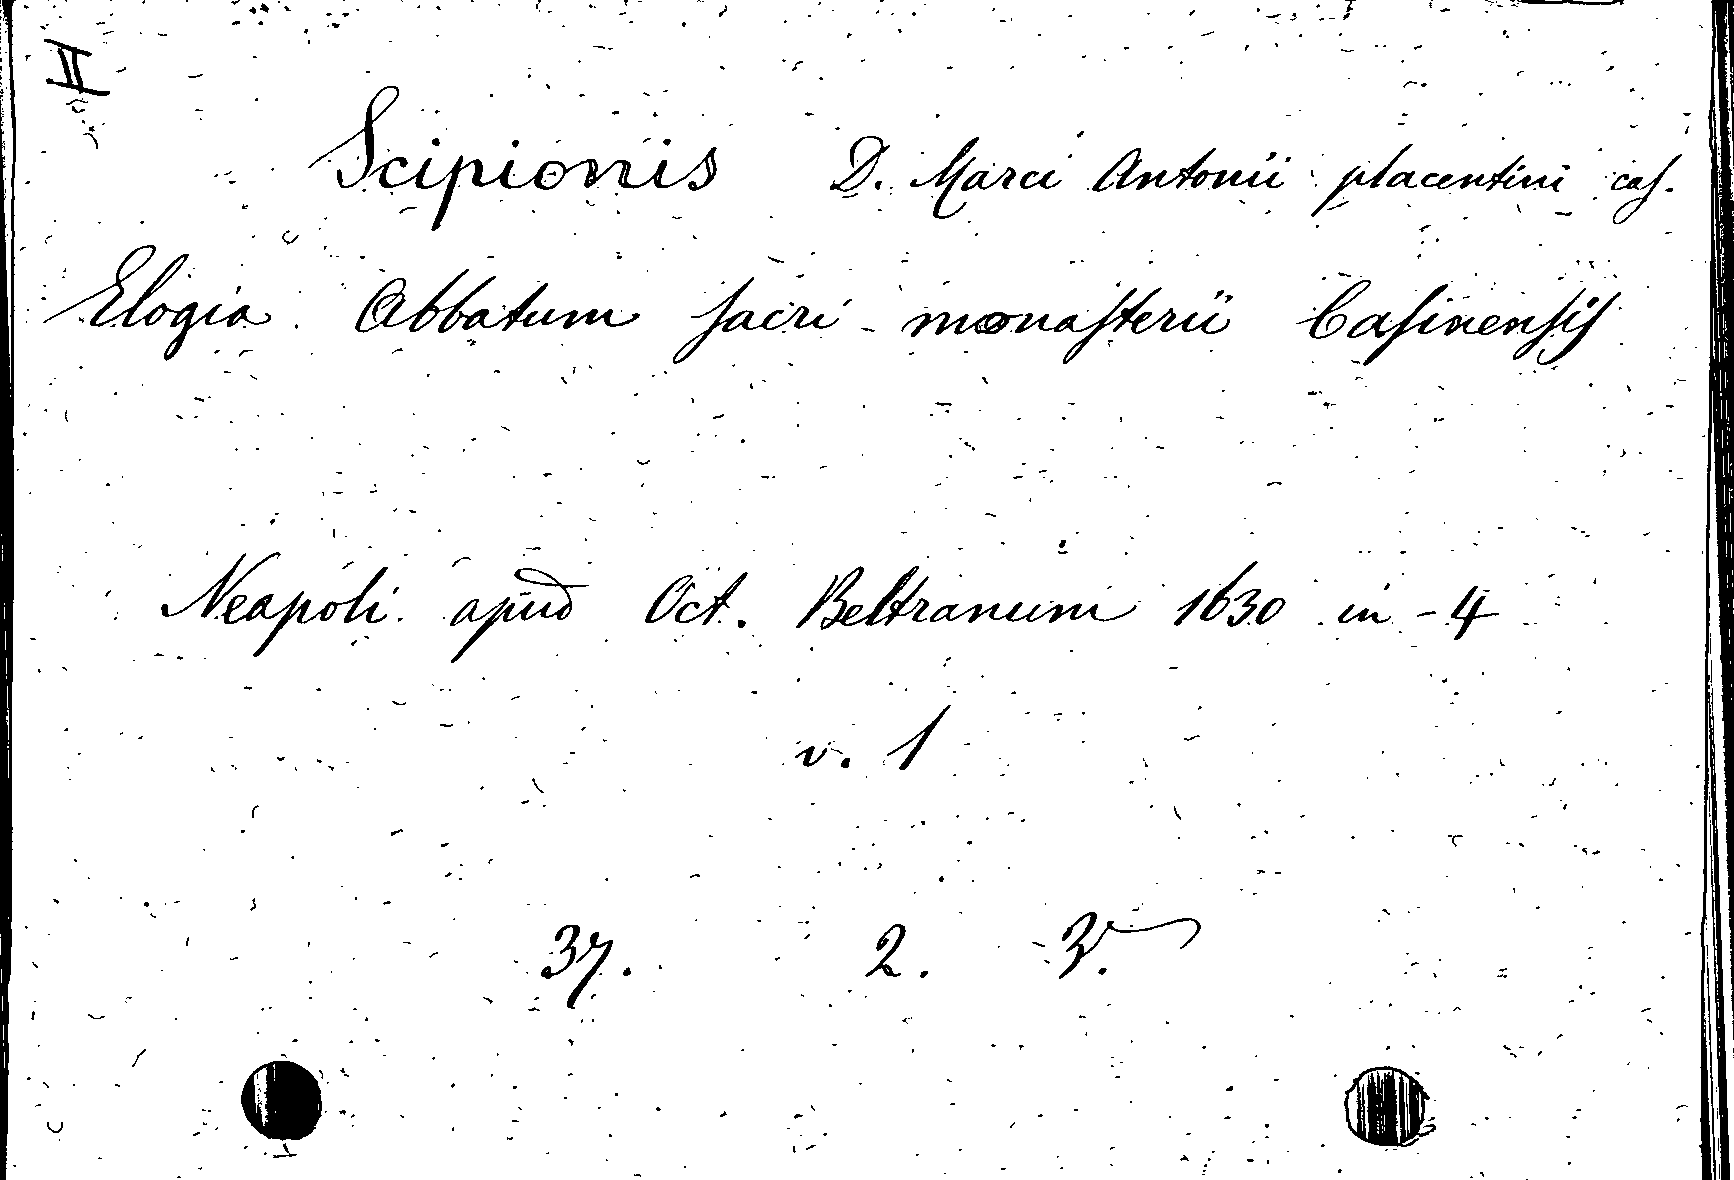 Scipionis D. Marci Antonii placentini cas.
Elogia Abbatum sacri monasterii Casinensis
Neapoli apud Oct. Beltranum 1630 in-4
v. 1
37. 2. 3.